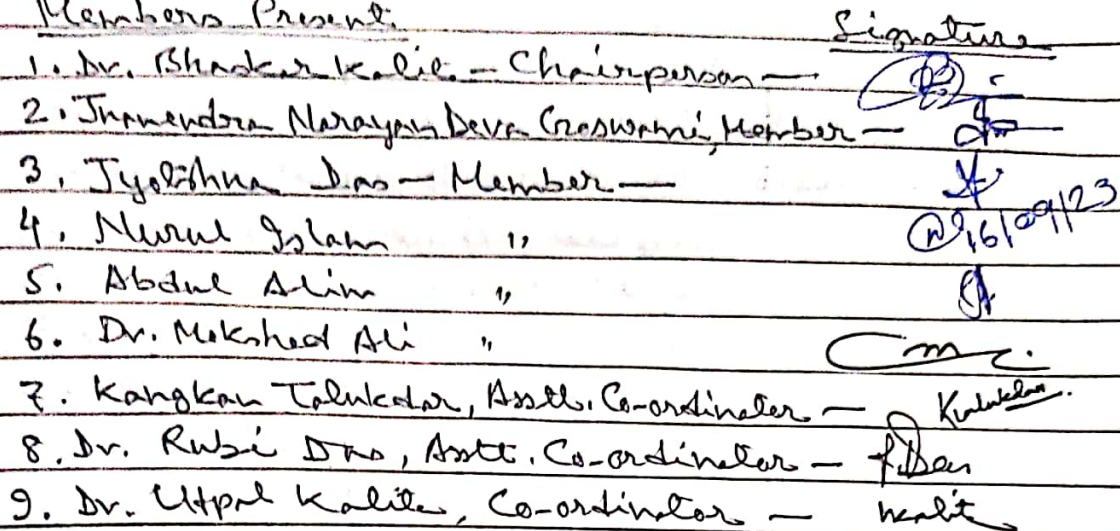 Members Present. Signature
1. Dr. Bhaskar Kalita - Chairperson -
2. Jnanendra Narayan Deva Goswami, Member -
3. Jyotishna Das - Member -
4. Nurul Islam " 16/09/23
5. Abdul Alim "
6. Dr. Mokshed Ali "
7. Kangkan Talukdar, Asstt. Co-ordinator -
8. Dr. Rubi Das, Asstt. Co-ordinator - R.Das
9. Dr. Utpal Kalita, Co-ordinator -